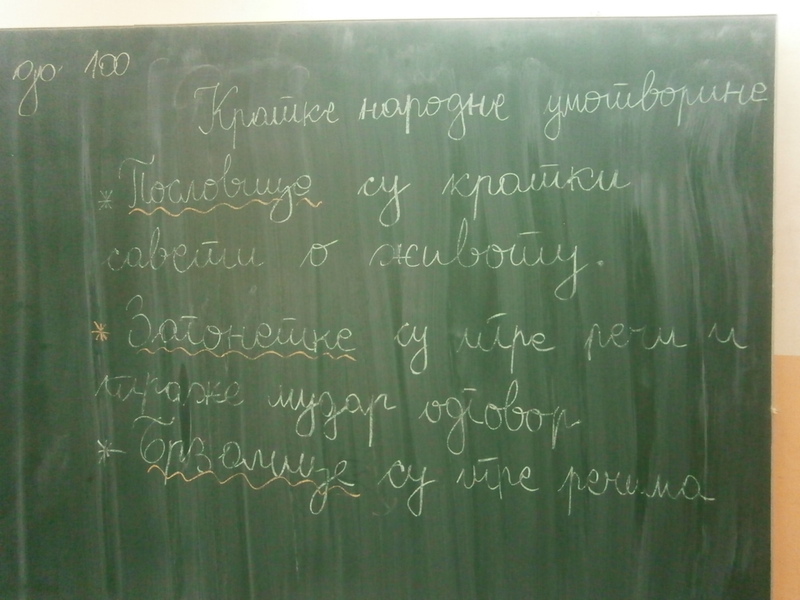 до 100
Кратке народне умотворине
* Пословице су кратки
савети о животу.
* Загонетке су игре речи и
траже мудар одговор
* Брзалице су игре речима